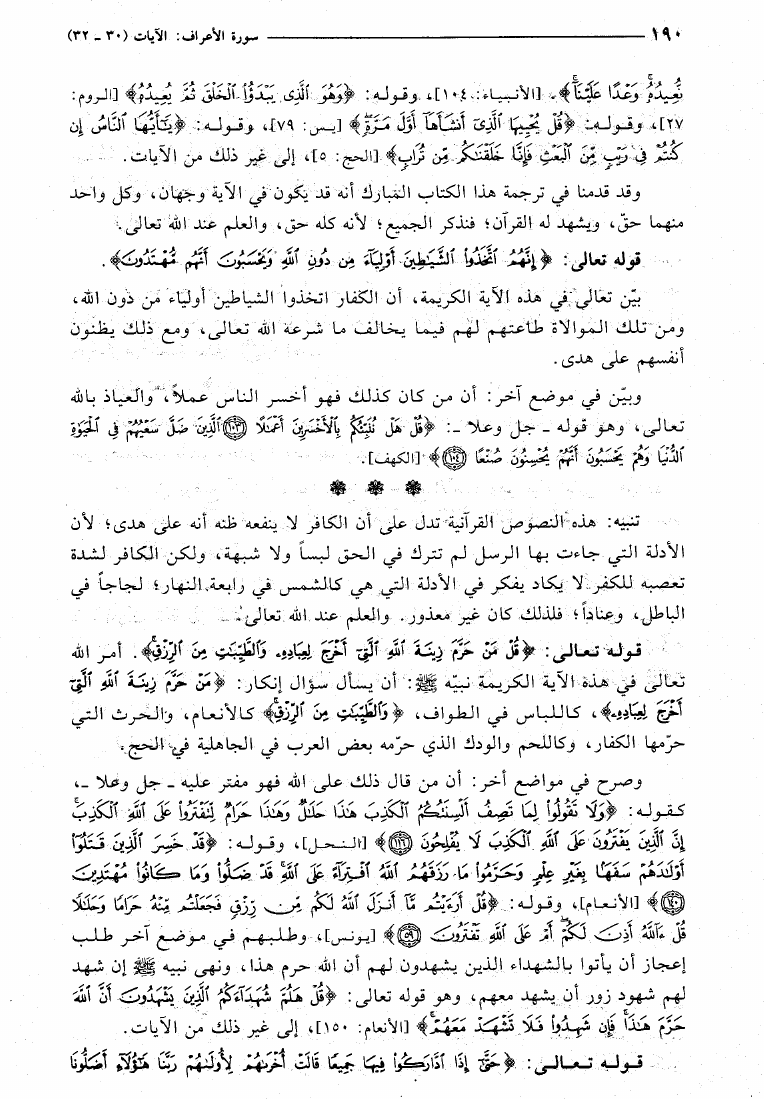 ١٩٠ سورة الأعراف: الآيات (٣٠ - ٣٢)
نُّعِيدُهُۥ وَعْدًا عَلَيْنَآ﴾. [الأنبياء: ١٠٤]، وقوله: ﴿وَهُوَ ٱلَّذِى يَبْدَؤُا۟ ٱلْخَلْقَ ثُمَّ يُعِيدُهُۥ﴾ [الروم:
٢٧]، وقوله: ﴿قُلْ يُحْيِيهَا ٱلَّذِىٓ أَنشَأَهَآ أَوَّلَ مَرَّةٍ﴾ [يس: ٧٩]، وقوله: ﴿يَٰٓأَيُّهَا ٱلنَّاسُ إِن
كُنتُمْ فِى رَيْبٍ مِّنَ ٱلْبَعْثِ فَإِنَّا خَلَقْنَٰكُم مِّن تُرَابٍ﴾ [الحج: ٥]، إلى غير ذلك من الآيات.
وقد قدمنا في ترجمة هذا الكتاب المبارك أنه قد يكون في الآية وجهان، وكل واحد
منهما حقّ، ويشهد له القرآن؛ فنذكر الجميع؛ لأنه كله حق، والعلم عند الله تعالى.
قوله تعالى: ﴿إِنَّهُمُ ٱتَّخَذُوا۟ ٱلشَّيَٰطِينَ أَوْلِيَآءَ مِن دُونِ ٱللَّهِ وَيَحْسَبُونَ أَنَّهُم مُّهْتَدُونَ﴾.
بيّن تعالى في هذه الآية الكريمة، أن الكفار اتخذوا الشياطين أولياء من دون الله،
ومن تلك الموالاة طاعتهم لهم فيما يخالف ما شرعه الله تعالى، ومع ذلك يظنون
أنفسهم على هدى.
وبيّن في موضع آخر: أن من كان كذلك فهو أخسر الناس عملاً، والعياذ بالله
تعالى، وهو قوله ـ جل وعلا ـ: ﴿قُلْ هَلْ نُنَبِّئُكُم بِٱلْأَخْسَرِينَ أَعْمَٰلًا ١٠٣ ٱلَّذِينَ ضَلَّ سَعْيُهُمْ فِى ٱلْحَيَوٰةِ
ٱلدُّنْيَا وَهُمْ يَحْسَبُونَ أَنَّهُمْ يُحْسِنُونَ صُنْعًا ١٠٤﴾ [الكهف].
تنبيه: هذه النصوص القرآنية تدل على أن الكافر لا ينفعه ظنه أنه على هدى؛ لأن
الأدلة التي جاءت بها الرسل لم تترك في الحق لبساً ولا شبهة، ولكن الكافر لشدة
تعصبه للكفر لا يكاد يفكر في الأدلة التي هي كالشمس في رابعة النهار؛ لجاجاً في
الباطل، وعناداً؛ فلذلك كان غير معذور. والعلم عند الله تعالى.
قوله تعالى: ﴿قُلْ مَنْ حَرَّمَ زِينَةَ ٱللَّهِ ٱلَّتِىٓ أَخْرَجَ لِعِبَادِهِۦ وَٱلطَّيِّبَٰتِ مِنَ ٱلرِّزْقِ﴾. أمر الله
تعالى في هذه الآية الكريمة نبيّه ﷺ: أن يسأل سؤال إنكار: ﴿مَنْ حَرَّمَ زِينَةَ ٱللَّهِ ٱلَّتِىٓ
أَخْرَجَ لِعِبَادِهِۦ﴾، كاللباس في الطواف، ﴿وَٱلطَّيِّبَٰتِ مِنَ ٱلرِّزْقِ﴾ كالأنعام، والحرث التي
حرّمها الكفار، وكاللحم والودك الذي حرّمه بعض العرب في الجاهلية في الحج.
وصرح في مواضع أخر: أن من قال ذلك على الله فهو مفتر عليه ـ جل وعلا ـ،
كقوله: ﴿وَلَا تَقُولُوا۟ لِمَا تَصِفُ أَلْسِنَتُكُمُ ٱلْكَذِبَ هَٰذَا حَلَٰلٌ وَهَٰذَا حَرَامٌ لِّتَفْتَرُوا۟ عَلَى ٱللَّهِ ٱلْكَذِبَ
إِنَّ ٱلَّذِينَ يَفْتَرُونَ عَلَى ٱللَّهِ ٱلْكَذِبَ لَا يُفْلِحُونَ ١١٦﴾ [النحل]، وقوله: ﴿قَدْ خَسِرَ ٱلَّذِينَ قَتَلُوٓا۟
أَوْلَٰدَهُمْ سَفَهًۢا بِغَيْرِ عِلْمٍ وَحَرَّمُوا۟ مَا رَزَقَهُمُ ٱللَّهُ ٱفْتِرَآءً عَلَى ٱللَّهِ قَدْ ضَلُّوا۟ وَمَا كَانُوا۟ مُهْتَدِينَ
١٤٠﴾ [الأنعام]، وقوله: ﴿قُلْ أَرَءَيْتُم مَّآ أَنزَلَ ٱللَّهُ لَكُم مِّن رِّزْقٍ فَجَعَلْتُم مِّنْهُ حَرَامًا وَحَلَٰلًا
قُلْ ءَآللَّهُ أَذِنَ لَكُمْ أَمْ عَلَى ٱللَّهِ تَفْتَرُونَ ٥٩﴾ [يونس]، وطلبهم في موضع آخر طلب
إعجاز أن يأتوا بالشهداء الذين يشهدون لهم أن الله حرم هذا، ونهى نبيه ﷺ إن شهد
لهم شهود زور أن يشهد معهم، وهو قوله تعالى: ﴿قُلْ هَلُمَّ شُهَدَآءَكُمُ ٱلَّذِينَ يَشْهَدُونَ أَنَّ ٱللَّهَ
حَرَّمَ هَٰذَا فَإِن شَهِدُوا۟ فَلَا تَشْهَدْ مَعَهُمْ﴾ [الأنعام: ١٥٠]، إلى غير ذلك من الآيات.
قوله تعالى: ﴿حَتَّىٰٓ إِذَا ٱدَّارَكُوا۟ فِيهَا جَمِيعًا قَالَتْ أُخْرَىٰهُمْ لِأُولَىٰهُمْ رَبَّنَا هَٰٓؤُلَآءِ أَضَلُّونَا